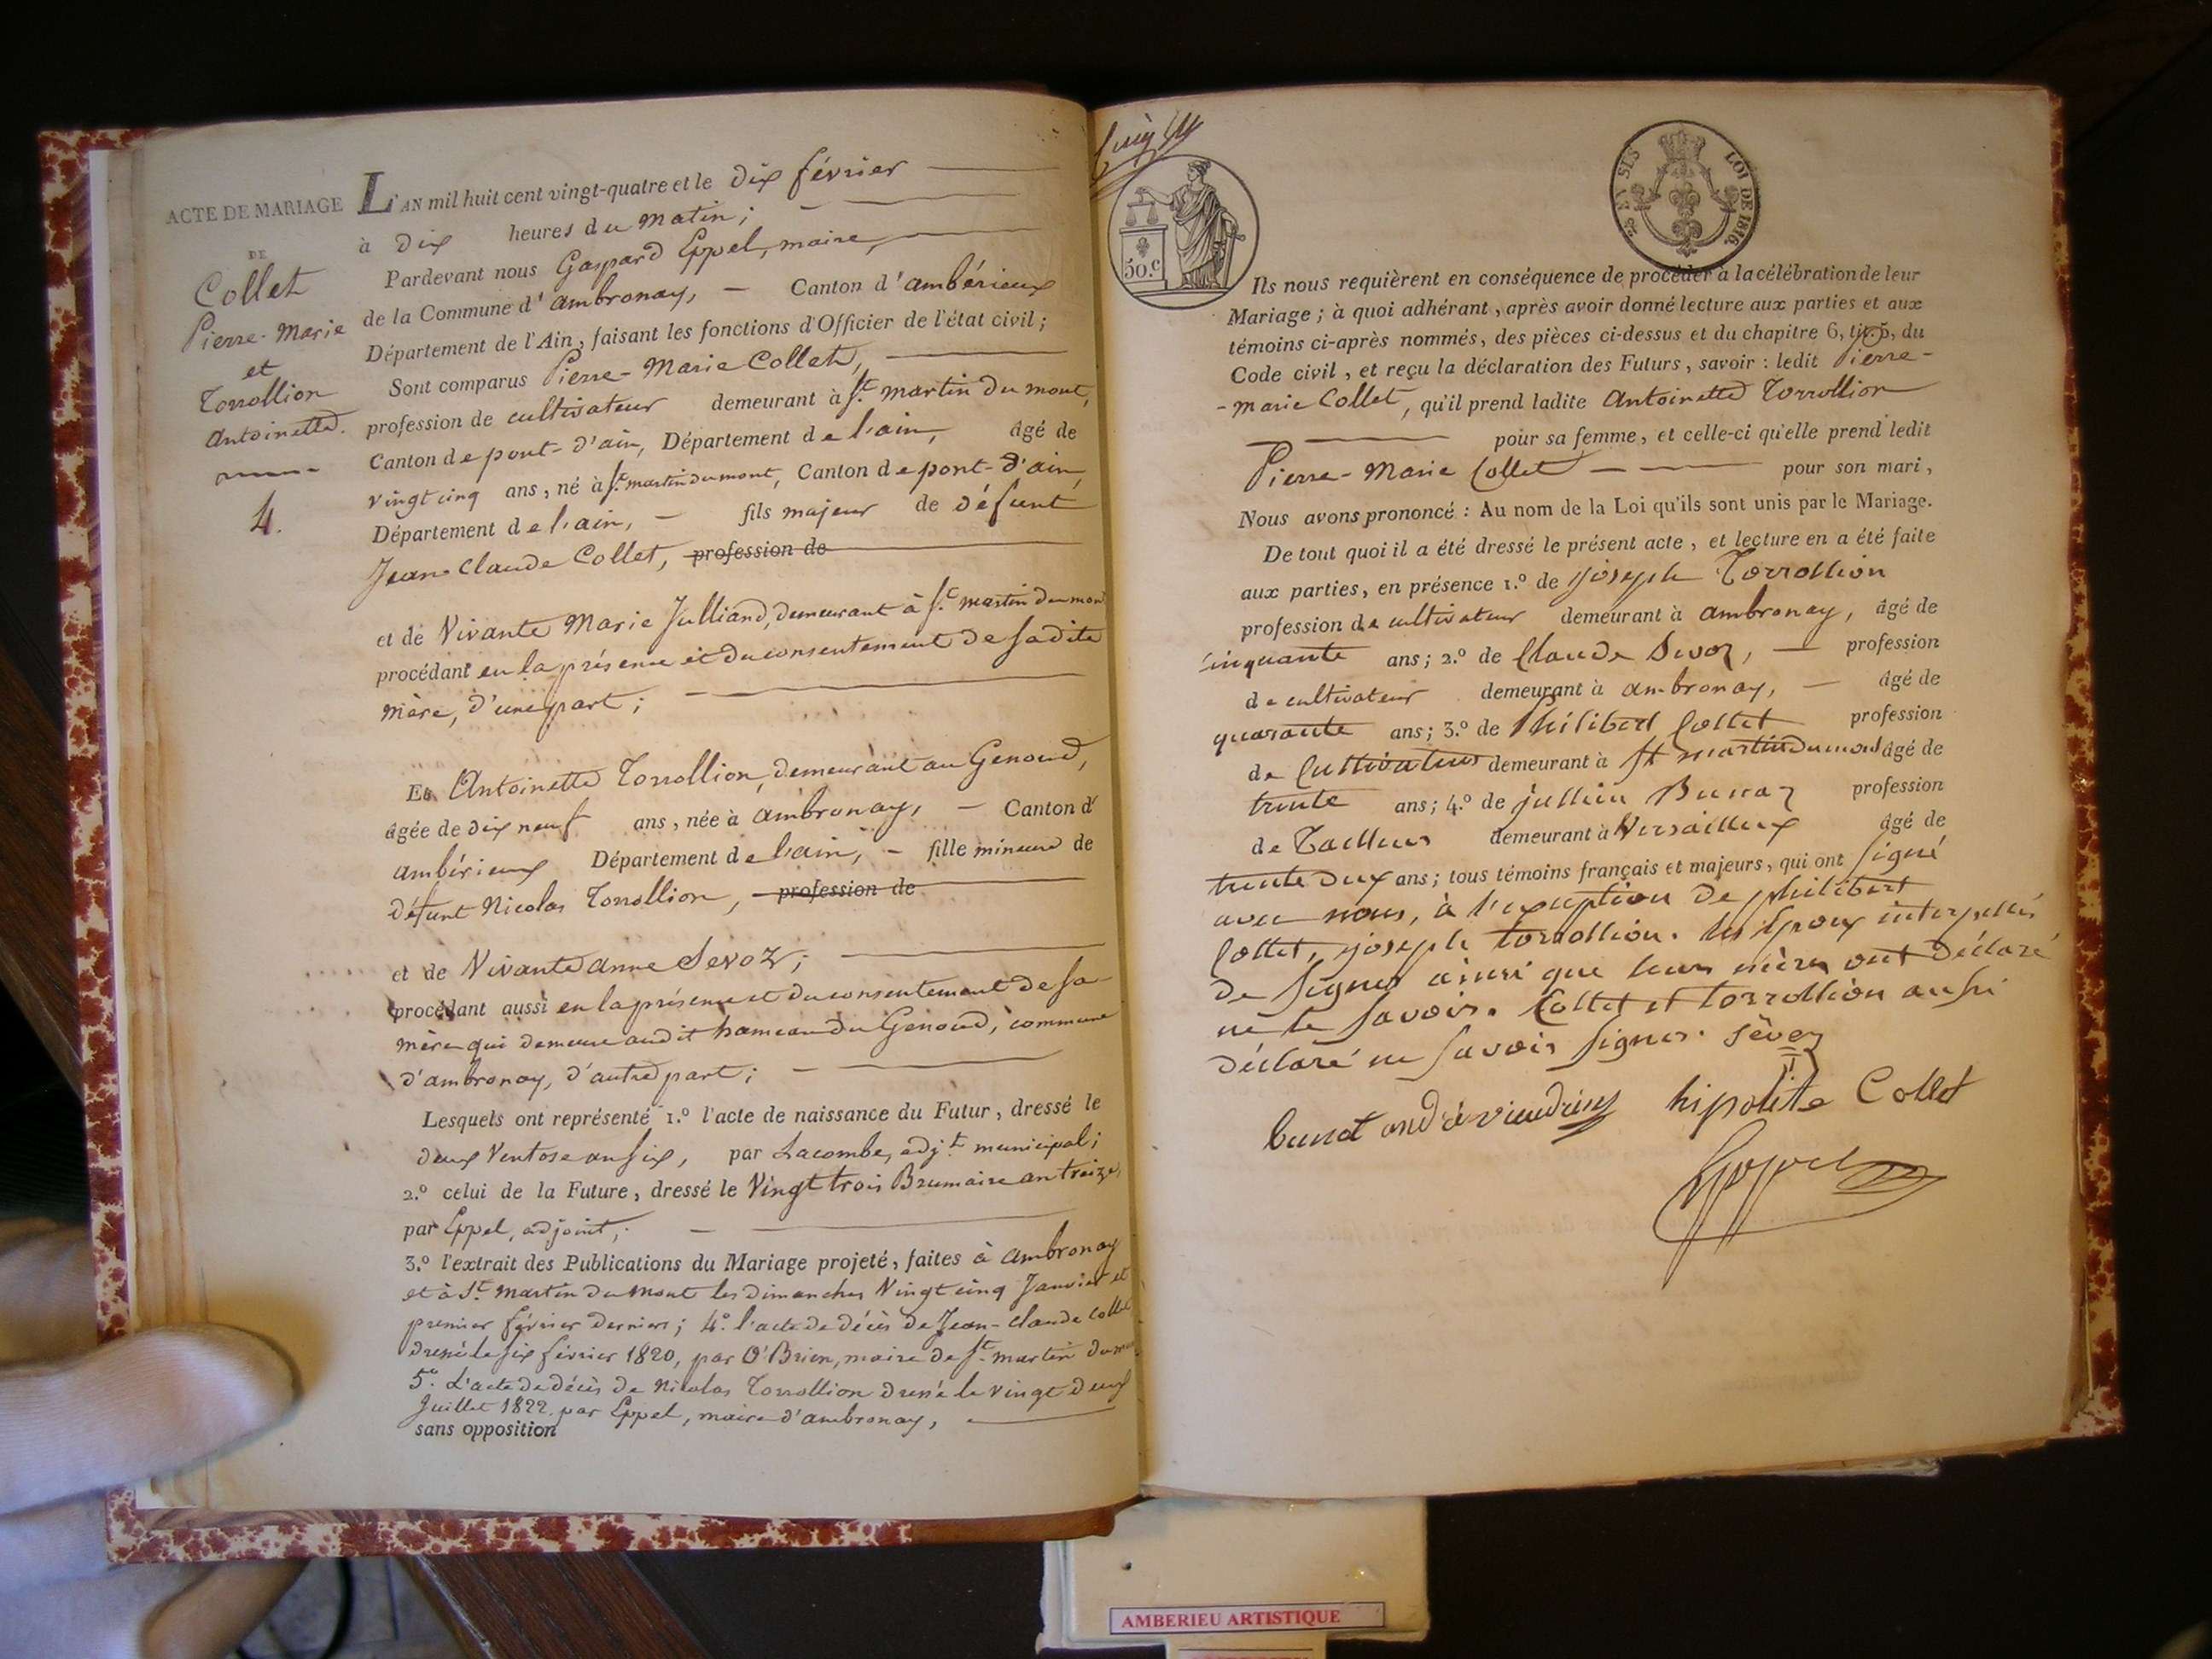 ACTE DE MARIAGE
DE
Collet
Pierre-Marie
et
Torrollion
Antoinette.
4.
L'AN mil huit cent vingt-quatre et le dix février
à dix heures du matin;
Pardevant nous Gaspard Eppel, maire,
de la Commune d'ambronay, - Canton d'ambérieux
Département de l'Ain, faisant les fonctions d'Officier de l'état civil;
Sont comparus Pierre-Marie Collet,
profession de cultivateur demeurant à St. martin du mont,
Canton de pont-d'ain, Département de l'ain, âgé de
vingt cinq ans, né à St. martin du mont, Canton de pont-d'ain,
Département de l'ain, - fils majeur de défunt
Jean Claude Collet, profession de
et de Vivante Marie Julliand, demeurant à St. martin du mont
procédant en la présence et du consentement de sadite
mère, d'une part;
Et Antoinette Torrollion, demeurant au Genoud,
âgée de dix neuf ans, née à ambronay, - Canton d'
ambérieux Département de l'ain, - fille mineure de
défunt Nicolas Torrollion, profession de
et de Vivante anne Sevoz;
procédant aussi en la présence et du consentement de sa
mère qui demeure audit hameau du Genoud, commune
d'ambronay, d'autre part;
Lesquels ont représenté 1.º l'acte de naissance du Futur, dressé le
deux Ventose an six, par Lacombe, adj.t municipal;
2.º celui de la Future, dressé le Vingt trois Brumaire an treize,
par Eppel, adjoint;
3.º l'extrait des Publications du Mariage projeté, faites à ambronay
et à St. martin du mont les dimanches Vingt cinq Janvier et
premier février derniers; 4.º l'acte de décès de Jean-Claude Collet
dressé le six février 1820, par O'Brien, maire de St. martin du
5.º L'acte de décès de Nicolas Torrollion dressé le vingt deux
Juillet 1822. par Eppel, maire d'ambronay,
sans opposition
50.c
LOI DE 1816.
Ils nous requièrent en conséquence de procéder à la célébration de leur
Mariage; à quoi adhérant, après avoir donné lecture aux parties et aux
témoins ci-après nommés, des pièces ci-dessus et du chapitre 6, tit. 5, du
Code civil, et reçu la déclaration des Futurs, savoir: ledit Pierre-
-marie Collet, qu'il prend ladite Antoinette Torrollion
pour sa femme, et celle-ci qu'elle prend ledit
Pierre-Marie Collet pour son mari,
Nous avons prononcé: Au nom de la Loi qu'ils sont unis par le Mariage.
De tout quoi il a été dressé le présent acte, et lecture en a été faite
aux parties, en présence 1.º de joseph Torrollion
profession de cultivateur demeurant à ambronay, âgé de
cinquante ans; 2.º de Claude Sevoz, - profession
de cultivateur demeurant à ambronay, - âgé de
quarante ans; 3.º de Philibert Collet profession
de Cultivateur demeurant à St martin du mont âgé de
trente ans; 4.º de jullien profession
de Tailleur demeurant à Versailleux âgé de
trente deux ans; tous témoins français et majeurs, qui ont signé
avec nous, à l'exception de philibert
Collet, joseph torrollion. les Epoux interpellés
de signer ainsi que leurs mères ont déclaré
ne le savoir. Collet et torrollion aussi
déclaré ne savoir signer. sèvoz
hipolite Collet
Eppel
AMBERIEU ARTISTIQUE